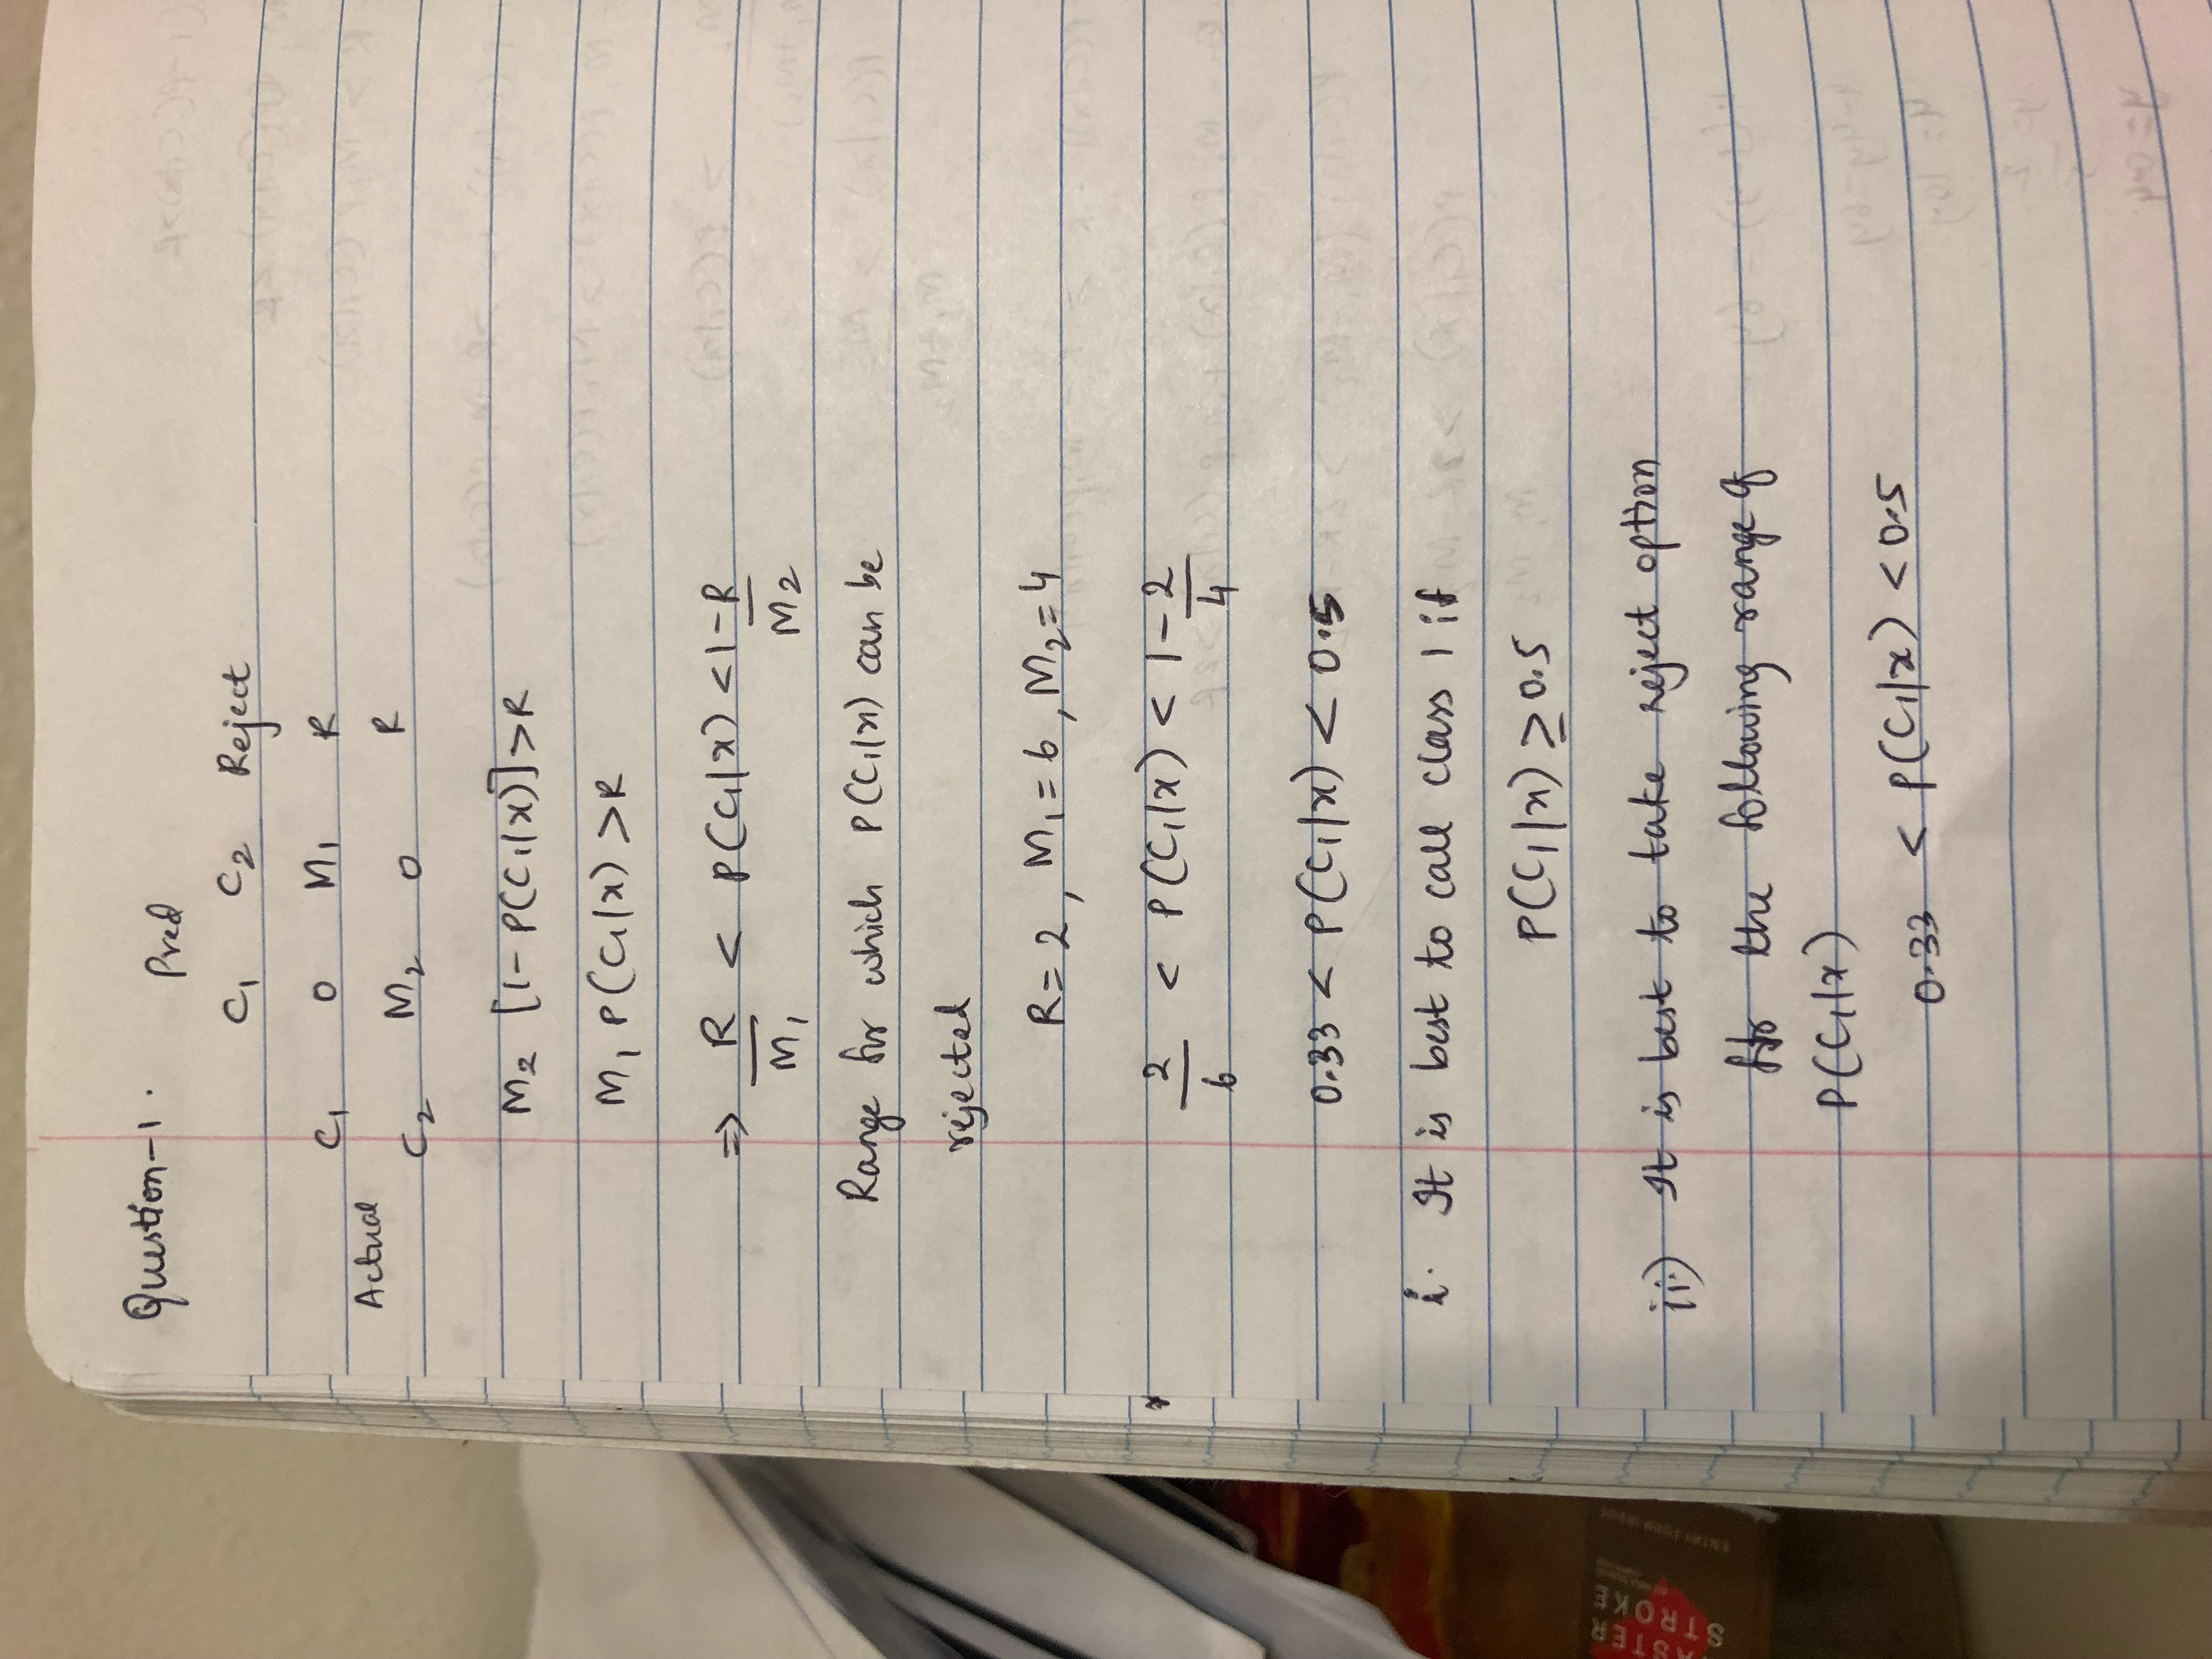 Question-1.
Pred
C₁ C₂ Reject
C₁ 0 M₁ R
Actual
C₂ M₂ 0 R
M₂ [1-P(C₁|x)]>R
M₁ P(C₁|x) >R
⇒ R/M₁ < P(C₁|x) < 1-R/M₂
Range for which P(C₁|x) can be
rejected
R=2, M₁=6, M₂=4
2/6 < P(C₁|x) < 1-2/4
0.33 < P(C₁|x) < 0.5
i. It is best to call class 1 if
P(C₁|x) ≥ 0.5
ii) It is best to take reject option
for the following range of
P(C₁|x)
0.33 < P(C₁|x) < 0.5
ASTER
STROKE